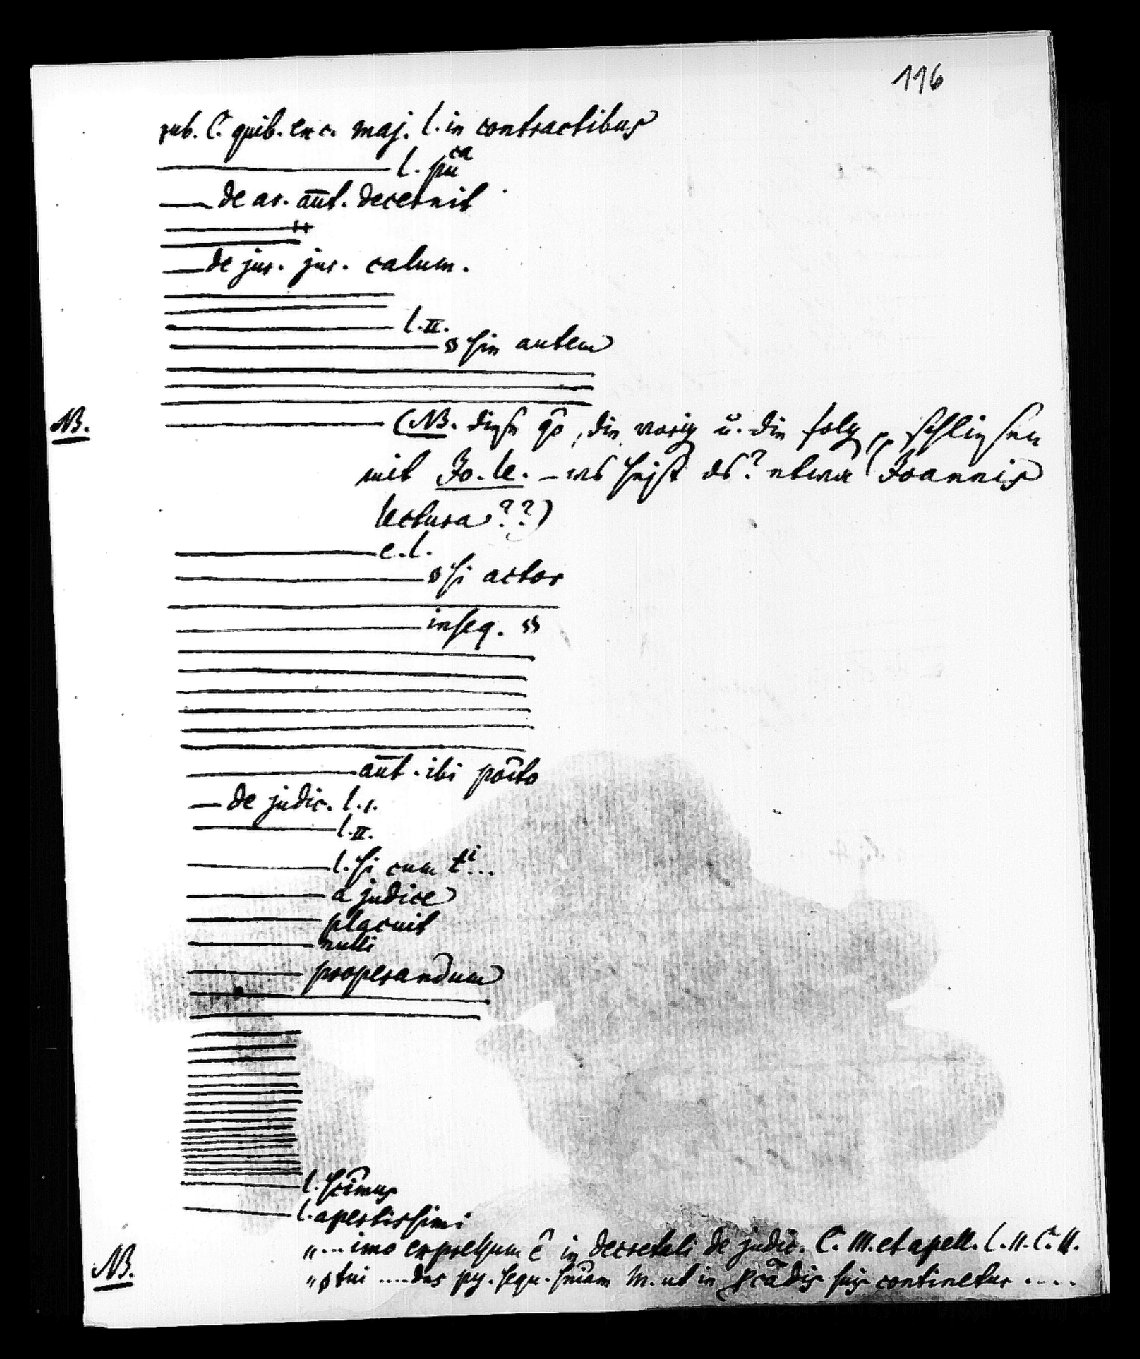 116
rub. C. quib. ex c. maj. l. in contractibus
l. pu͞ca
de ar. aut. decernit
de jur. jur. calum.
l. II.
§ sin autem
NB.
(NB. diese qo, die vorig u. die folg schließen
mit Jo. le. – was heißt ds? etwa Joannis
lectura??)
e. l.
§ si actor
inseq. §§
aut. ibi
de judic. l. 1.
l. II.
l. si cum
a judice
placuit
nulli
properandum
l.
l. apertissimi
„... imo expressum ē in decretali de judic. C. III. et apell. l. II. C. II.
NB.
„ ... sequ. ... ut in ... continetur ....